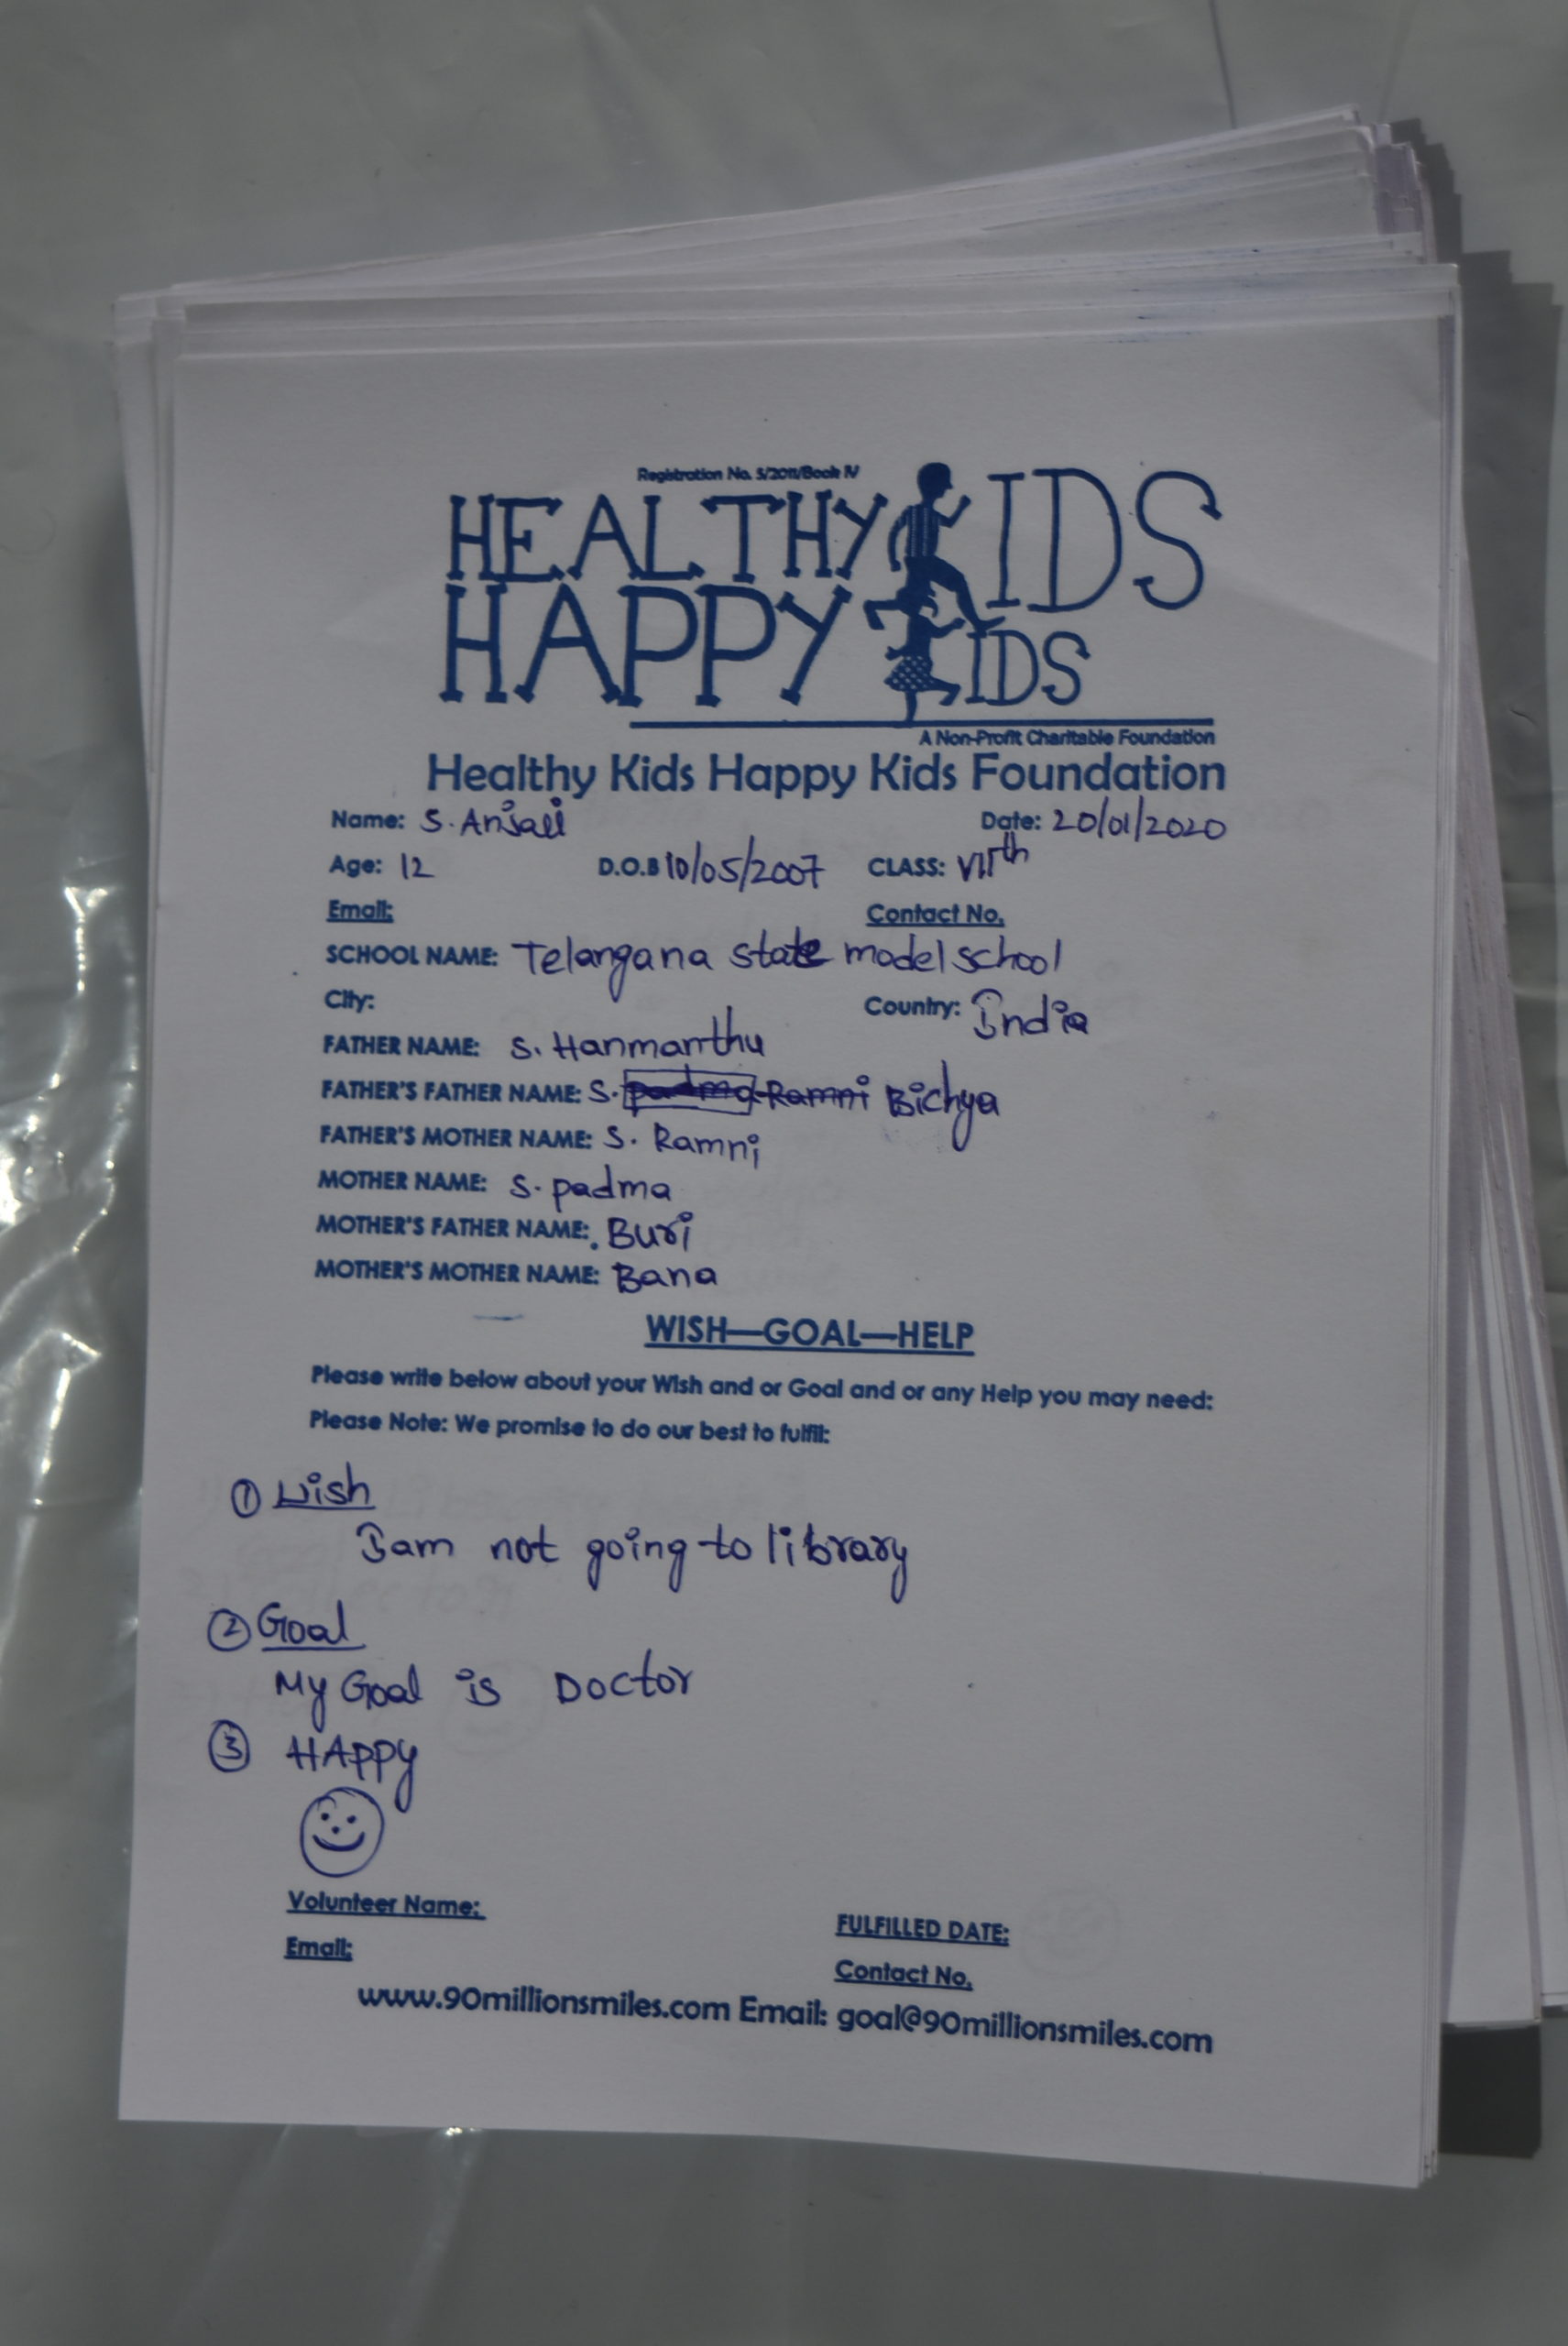 Registration No. 5/2011/Book IV
HEALTHY KIDS
HAPPY KIDS
A Non-Profit Charitable Foundation
Healthy Kids Happy Kids Foundation
Name: S. Anjali Date: 20/01/2020
Age: 12 D.O.B 10/05/2007 CLASS: VIIth
Email: Contact No.
SCHOOL NAME: Telangana state model school
City: Country: India
FATHER NAME: S. Hanmanthu
FATHER'S FATHER NAME: S. padma Ramni Bichya
FATHER'S MOTHER NAME: S. Ramni
MOTHER NAME: S. padma
MOTHER'S FATHER NAME: Buri
MOTHER'S MOTHER NAME: Bana
WISH—GOAL—HELP
Please write below about your Wish and or Goal and or any Help you may need:
Please Note: We promise to do our best to fulfil:
① Wish
I am not going to library
② Goal
My Goal is Doctor
③ HAppy
Volunteer Name: FULFILLED DATE:
Email: Contact No.
www.90millionsmiles.com Email: goal@90millionsmiles.com